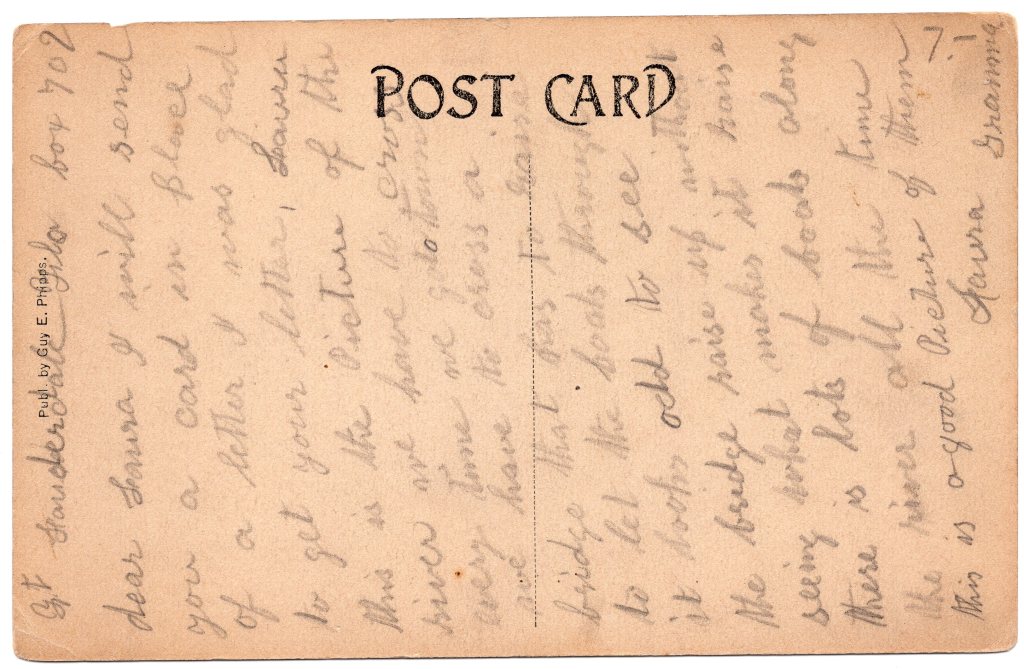 POST CARD
Publ. by Guy E. Phipps.
Ft Lauderdale Fla box 702
dear Laura I will send
you a card in Place
of a letter I was glad
to get your letter, Laura
this is the Picture of the
river we have to cross
every time we go to town
we have to cross a
bridge that has to raise
to let the boats through
it looks odd to see
the bridge raise up without
seeing what makes it raise
there is lots of boats along
the river all the time
this is a good Picture of them
Laura Gramma